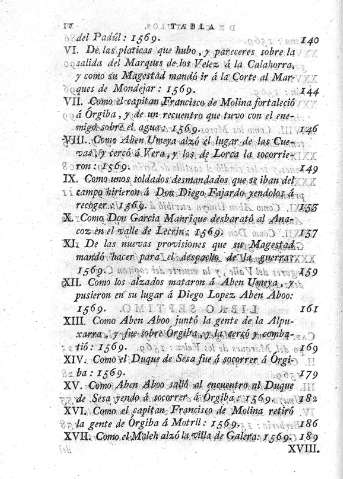 VI TABLA
del Padúl: 1569. 140
VI. De las platicas que hubo, y pareceres sobre la
salida del Marques de los Velez á la Calahorra,
y como su Magestad mandó ir á la Corte al Mar-
ques de Mondejar: 1569. 144
VII. Como el capitan Francisco de Molina fortaleció
á Órgiba, y de un recuentro que tuvo con el ene-
migo sobre el agua: 1569. 146
VIII. Como Aben Umeya alzó el lugar de las Cue-
vas, y cercó á Vera, y los de Lorca la socorrie-
ron: 1569. 149
IX. Como unos soldados desmandados que se iban del
campo hirieron á Don Diego Fajardo yendolos á
recoger: 1569. 155
X. Como Don Garcia Manrique desbarató al Ana-
coz en el valle de Lecrin: 1569. 157
XI. De las nuevas provisiones que su Magestad
mandó hacer para el despacho de la guerra:
1569. 159
XII. Como los alzados mataron á Aben Umeya, y
pusieron en su lugar á Diego Lopez Aben Aboo:
1569. 161
XIII. Como Aben Aboo juntó la gente de la Alpu-
xarra, y fue sobre Órgiba, y la cercó y comba-
tió: 1569. 169
XIV. Como el Duque de Sesa fué á socorrer á Órgi-
ba: 1569. 179
XV. Como Aben Aboo salió al encuentro al Duque
de Sesa yendo á socorrer á Órgiba: 1569. 182
XVI. Como el capitan Francisco de Molina retiró
la gente de Órgiba á Motril: 1569. 186
XVII. Como el Maleh alzó la villa de Galera: 1569. 189
XVIII.